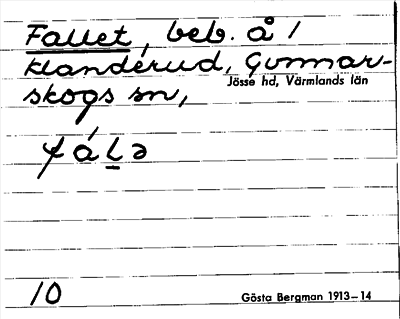 Fallet, beb. å /
Klanderud, Gunnar-
Jösse hd, Värmlands län
skogs sn,
fáḷə
10
Gösta Bergman 1913–14